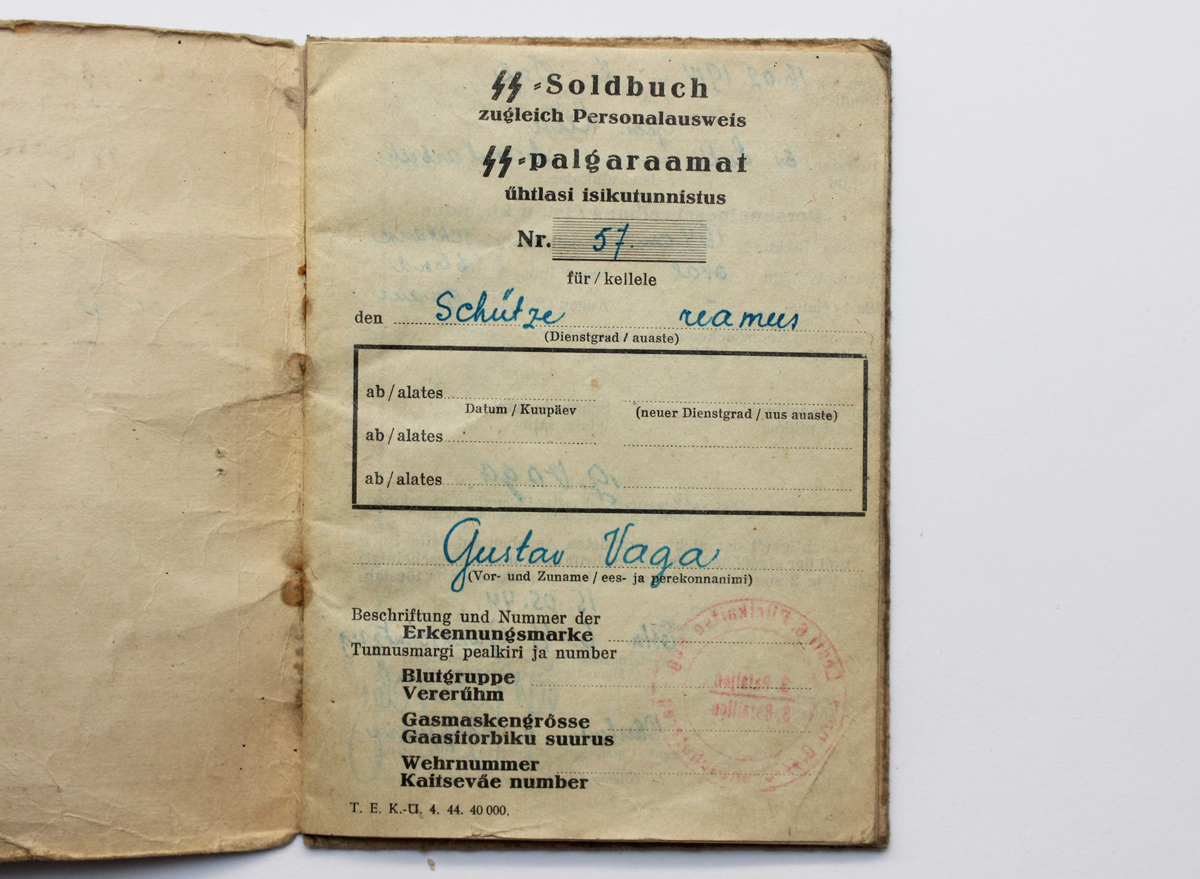 SS-Soldbuch
zugleich Personalausweis
SS-palgaraamat
űhtlasi isikutunnistus
Nr. 57.
für / kellele
den Schütze reamees
(Dienstgrad / auaste)
ab / alates
Datum / Kuupäev (neuer Dienstgrad / uus auaste)
ab / alates
ab / alates
Gustav Vaga
(Vor- und Zuname / ees- ja perekonnanimi)
Beschriftung und Nummer der
Erkennungsmarke
Tunnusmargi pealkiri ja number
Blutgruppe
Vererűhm
Gasmaskengrősse
Gaasitorbiku suurus
Wehrnummer
Kaitseväe number
T. E. K.-Ü. 4. 44. 40 000.